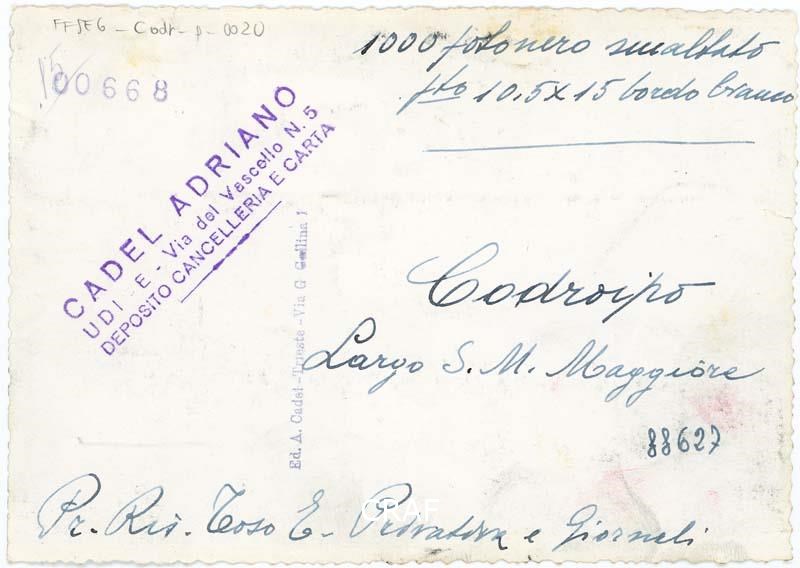 FFSEG - Codr - p - 0020
1000 fotonero smaltato
fto 10.5x15 bordo bianco
15
00668
CADEL ADRIANO
UDI E - Via del Vascello N. 5
DEPOSITO CANCELLERIA E CARTA
Ed. A. Cadel - Trieste - Via G Gallina 1
Codroipo
Largo S. M. Maggiore
88627
Pr. Ris. Toso E. e Giornali
CRAF